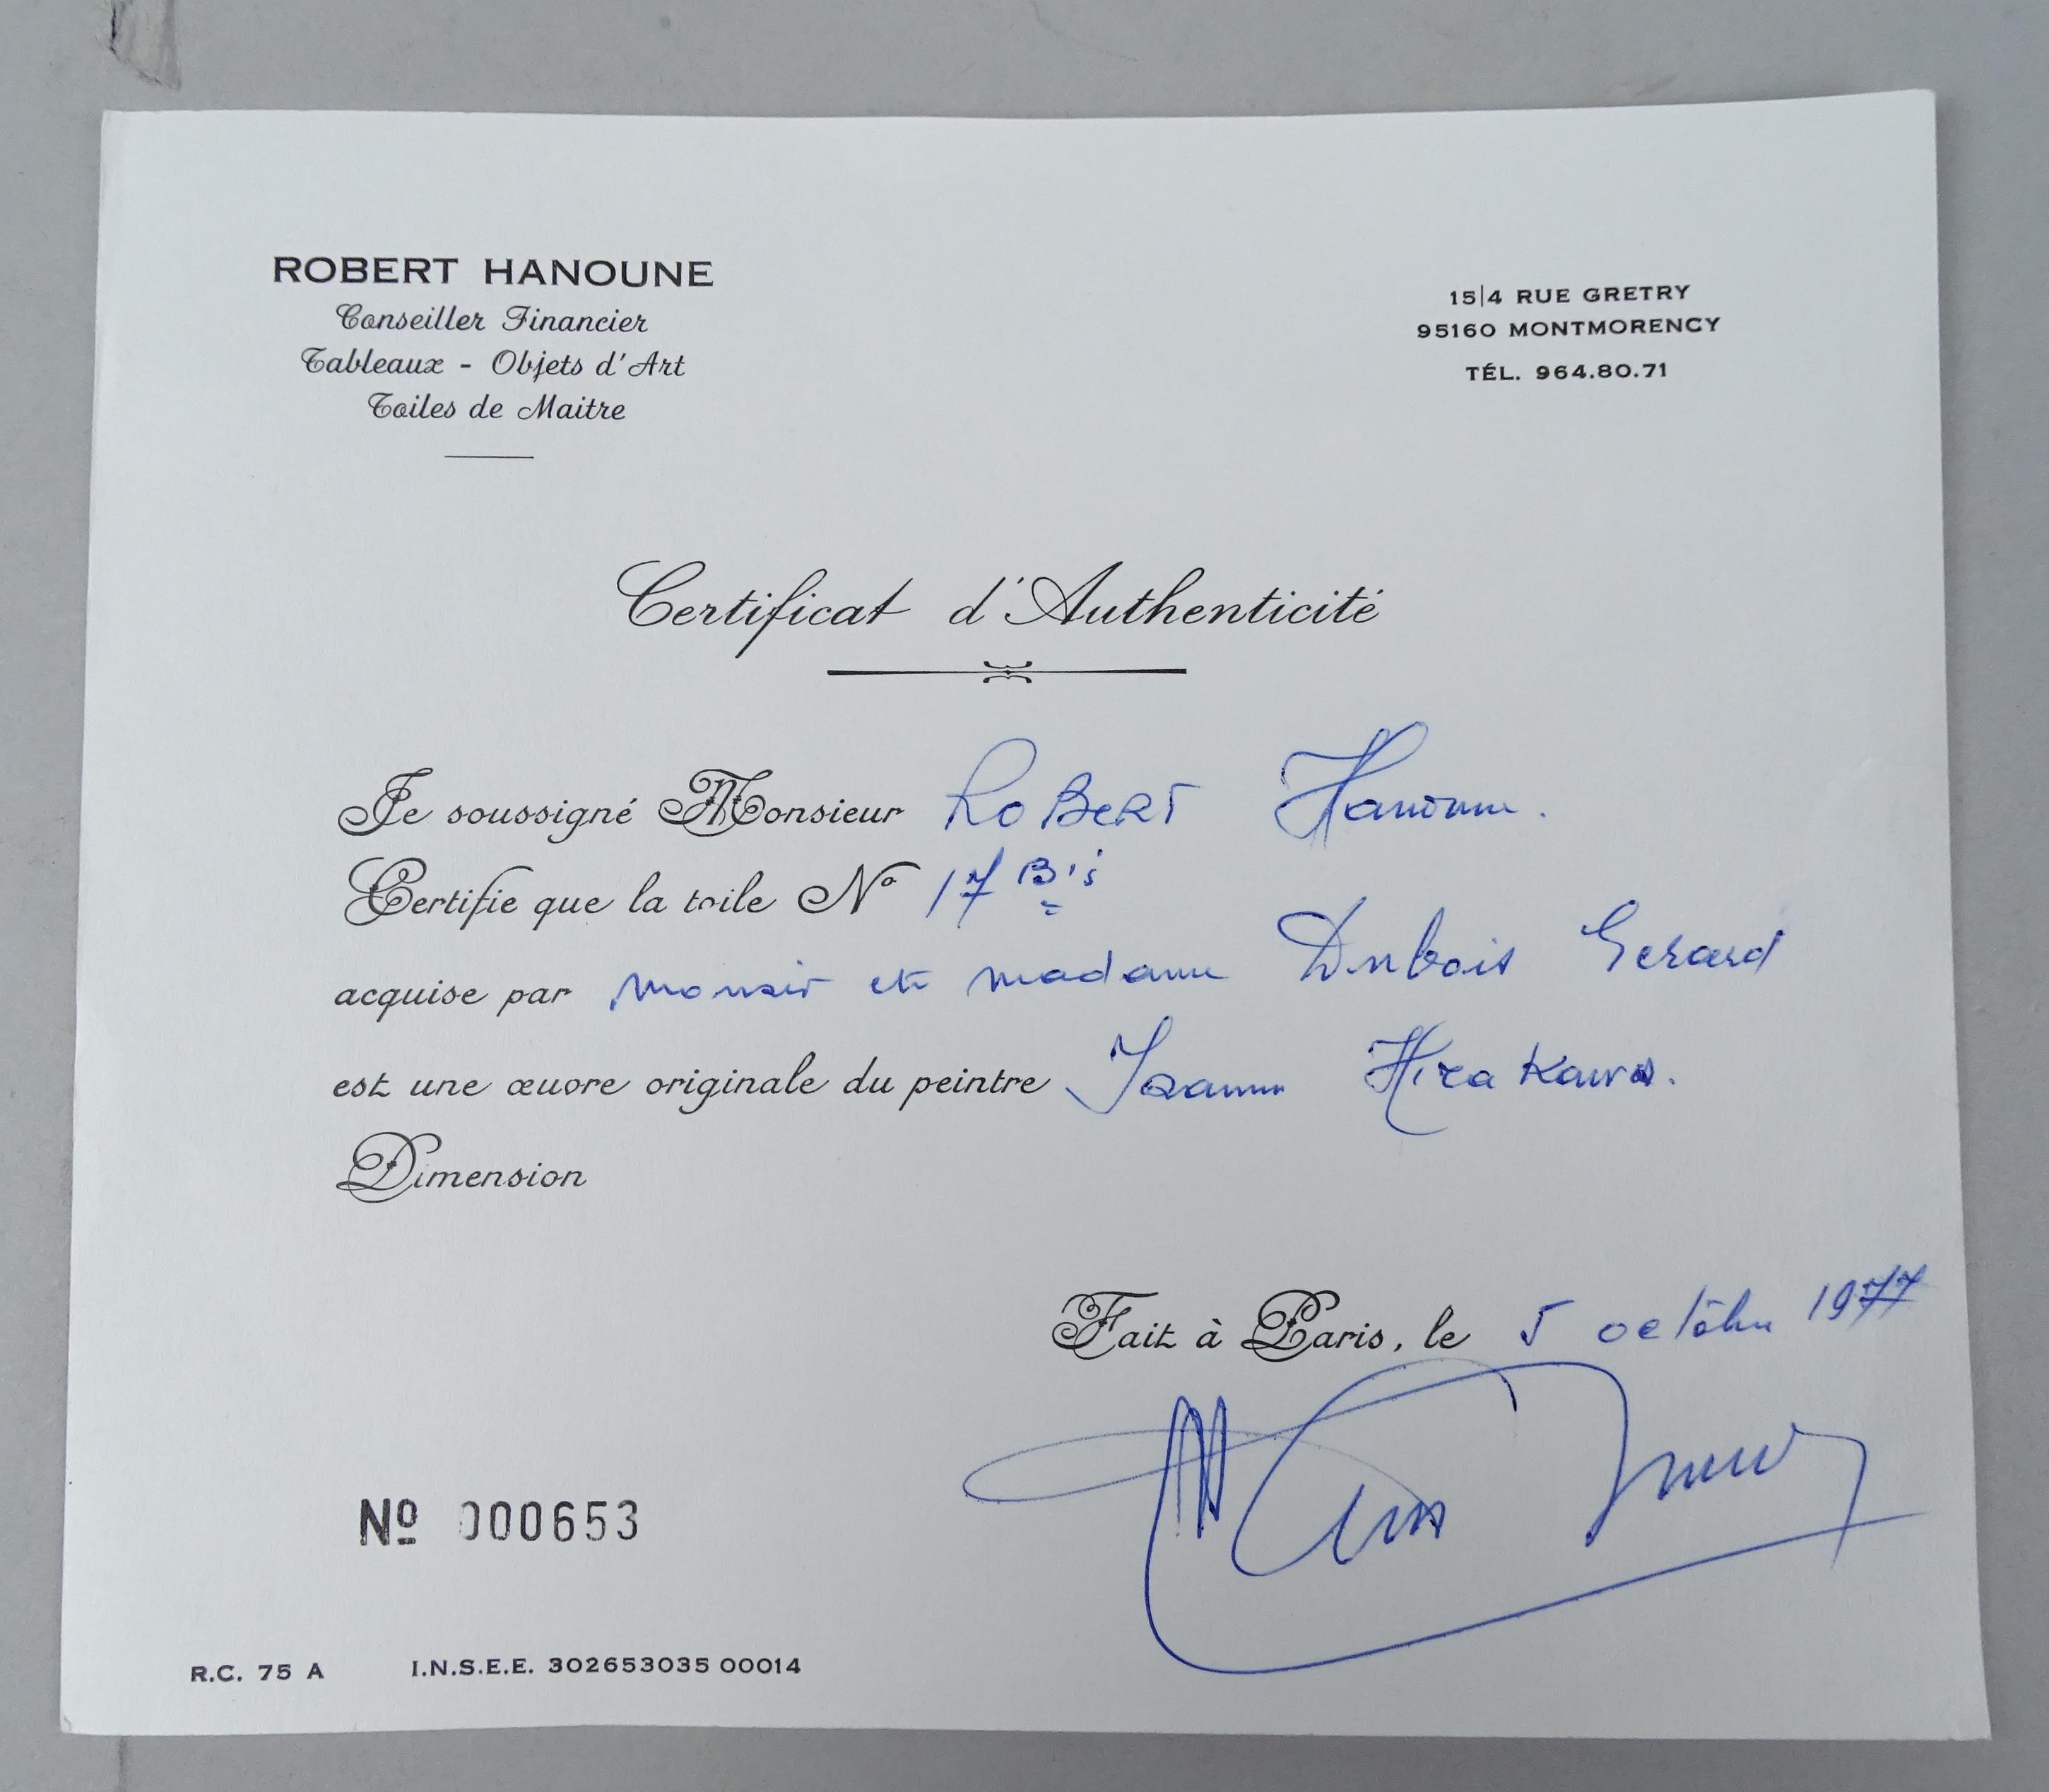 ROBERT HANOUNE
Conseiller Financier
Tableaux - Objets d'Art
Toiles de Maitre
15|4 RUE GRETRY
95160 MONTMORENCY
TÉL. 964.80.71
Certificat d'Authenticité
Je soussigné Monsieur RoBeRT Hanoune.
Certifie que la toile No 17 Bis
acquise par monsieur et madame Dubois Gerard
est une œuvre originale du peintre Hirakawa.
Dimension
Fait à Paris, le 5 octobre 1977
No 000653
R.C. 75 A I.N.S.E.E. 302653035 00014